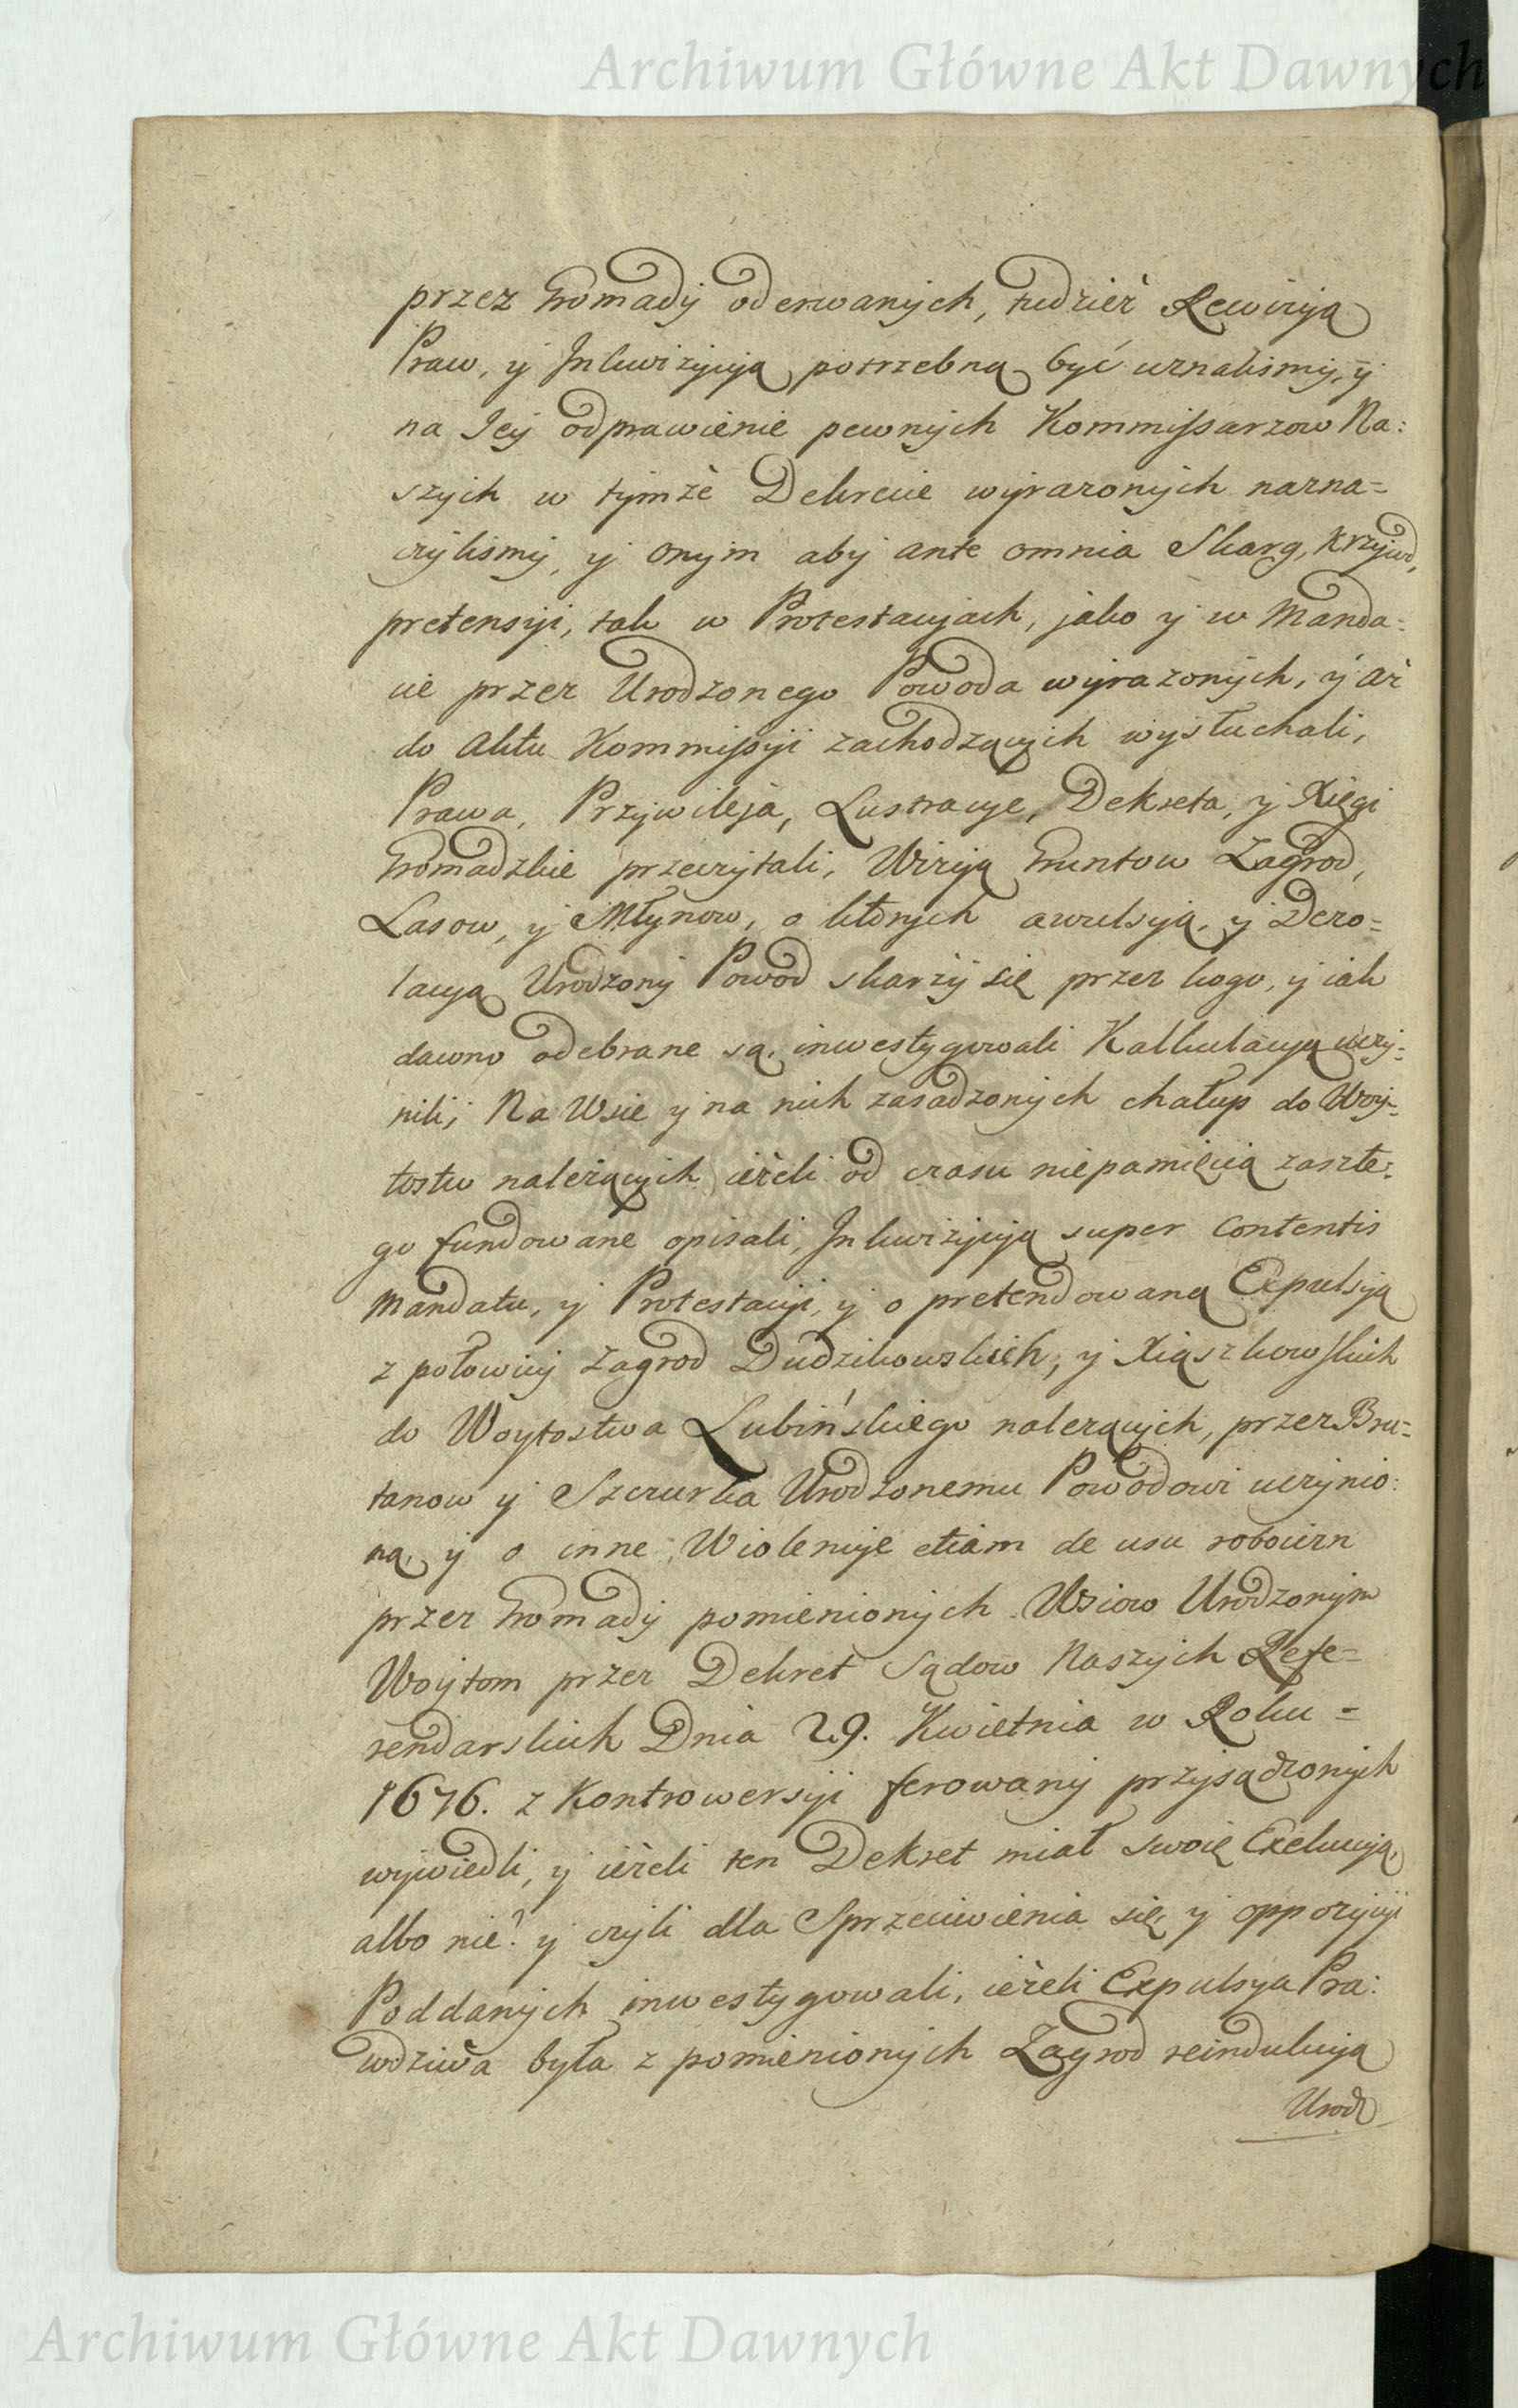 Archiwum Główne Akt Dawnych
przez Gromady oderwanych, tudzież Rewizyą
Praw, y Inkwizycyą potrzebną być uznalismy, y
na Jey odprawienie pewnych Kommissarzow Na:
szych w tymże Dekrecie wyrazonych nazna=
czylismy, y onym aby ante omnia Skarg, Krzywd,
pretensyi, tak w Protestacyach, jako y w Manda:
cie przez Urodzonego Powoda wyrazonych, y aż
do Aktu Kommissyi zachodzących wysłuchali,
Prawa, Przywileja, Lustracye, Dekreta, y Xięgi
Gromadzkie przeczytali, Wizyą Gruntow Zagrod,
Lasow, y Młynow, o których awulsyą, y Dezo=
lacyą Urodzony Powod skarży się przez kogo, y iak
dawno odebrane są, inwestygowali Kalkulacyą uczy=
nili; Na Wsie y na nich zasadzonych chałup do Woy=
tostw należących ieżeli od czasu niepamięcią zaszłe:
go fundowane opisali, Inkwizycyą super contentis
Mandatu, y Protestacyi, y o pretendowaną Expulsyą
z połowicy Zagrod Dudzikowskich, y Xiąszkowskich
do Woytostwa Lubińskiego nalezących, przez Bru=
tanow y Szczurka Urodzonemu Powodowi uczynio:
ną, y o inne Wiolencye etiam de usu robocizn
przez Gromady pomienionych Wsiow Urodzonym
Woytom przez Dekret Sądow Naszych Refe=
rendarskich Dnia 29. Kwietnia w Roku =
1676. z Kontrowersyi ferowany przysądzonych
wywiedli, y ieżeli ten Dekret miał swoię Exekucyą,
albo nie? y czyli dla Sprzeciwienia się y oppozycyi
Poddanych inwestygowali, ieżeli Expulsya Pra:
wdziwa była z pomienionych Zagrod reindukcyą
Urodz
Archiwum Główne Akt Dawnych